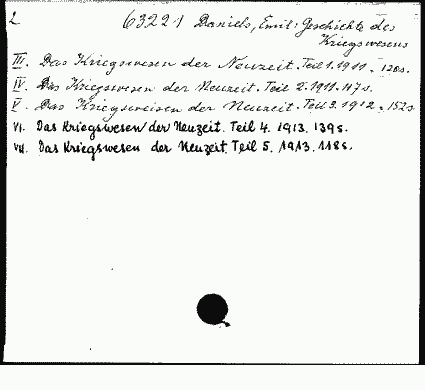 2 6322:1 Daniels, Emil: Geschichte des
Kriegswesens
III. Das Kriegswesen der Neuzeit. Teil 1. 1911. 120s.
IV. Das Kriegswesen der Neuzeit. Teil 2. 1911. 117s.
V. Das Kriegsweisen der Neuzeit. Teil 3. 1912. 152s.
VI. Das Kriegswesen der Neuzeit. Teil 4. 1913. 139s.
VII. Das Kriegswesen der Neuzeit. Teil 5. 1913. 118s.